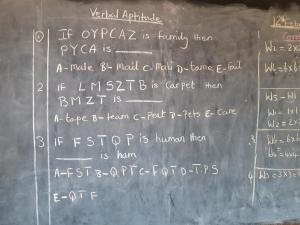 Verbal Aptitude
1 IF OYPCAZ is Family then
PYCA is
A-male B-mail C-Mau D-tame E-fail
2 IF LMSZTB is Carpet then
BMZT is
A-tape B-team C-Peat D-Pets E-Care
3 IF FSTQP is human then
is ham
A-FST B-QPT C-FQT D-TPS
E-QTF
W2 = 2x2
W6 = 6x6
3
4